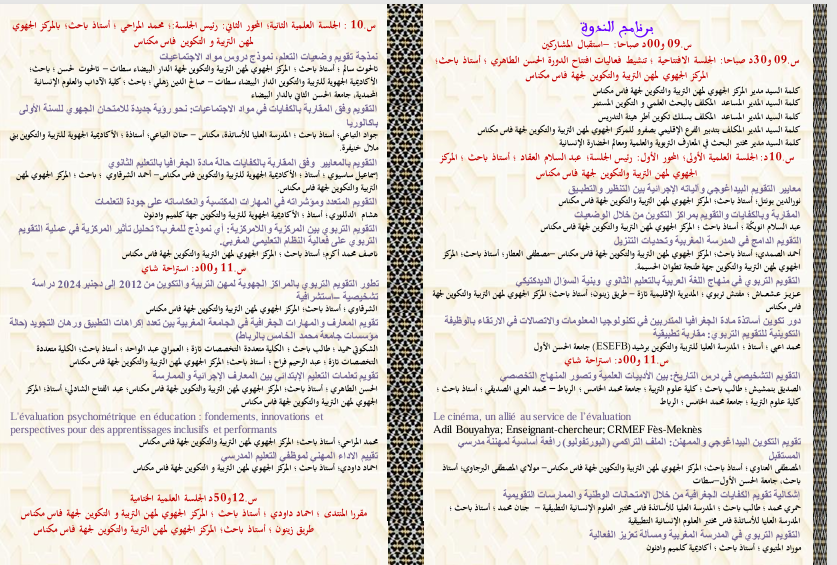 برنامج الندوة
س.09 و00د صباحا: –استقبال المشاركين
س.09 و30د صباحا: الجلسة الافتتاحية ؛ تنشيط فعاليات افتتاح الدورة الحسن الطاهري ؛ أستاذ باحث؛
المركز الجهوي لمهن التربية والتكوين لجهة فاس مكناس
كلمة السيد مدير المركز الجهوي لمهن التربية والتكوين لجهة فاس مكناس
كلمة السيد المدير المساعد المكلف بالبحث العلمي و التكوين المستمر
كلمة السيد المدير المساعد المكلف بسلك تكوين أطر هيئة التدريس
كلمة السيد المدير المكلف بتدبير الفرع الإقليمي بصفرو للمركز الجهوي لمهن التربية والتكوين لجهة فاس مكناس
كلمة السيد مدير مختبر البحث في المعارف التربوية والعلمية ومعالم الحضارة الإنسانية
س.10د: الجلسة العلمية الأولى؛ المحور الأول: رئيس الجلسة، عبد السلام العقاد ؛ أستاذ باحث ؛ المركز
الجهوي لمهن التربية والتكوين لجهة فاس مكناس
معايير التقويم البيداغوجي وآلياته الإجرائية بين التنظير والتطبيق
نورالدين بونتل؛ أستاذ باحث؛ المركز الجهوي لمهن التربية والتكوين لجهة فاس مكناس
المقاربة وبالكفايات والتقويم بمراكز التكوين من خلال الوضعيات
عبد السلام انويكة ؛ أستاذ باحث ؛ المركز الجهوي لمهن التربية والتكوين لجهة فاس مكناس
التقويم الدامج في المدرسة المغربية وتحديات التنزيل
أحمد الصمدي؛ أستاذ باحث؛ المركز الجهوي لمهن التربية والتكوين لجهة فاس مكناس –مصطفى العطار؛ أستاذ باحث؛ المركز
الجهوي لمهن التربية والتكوين جهة طنجة تطوان الحسيمة.
التقويم التربوي في منهاج اللغة العربية بالتعليم الثانوي وبنية السؤال الديدكتيكي
عزيز عشعاش ؛ مفتش تربوي ؛ المديرية الإقليمية تازة – طريق زينون؛ أستاذ باحث؛ المركز الجهوي لمهن التربية والتكوين لجهة
فاس مكناس
دور تكوين أساتذة مادة الجغرافيا المتدربين في تكنولوجيا المعلومات والاتصالات في الارتقاء بالوظيفة
التكوينية للتقويم التربوي: مقاربة تطبيقية
محمد أعبي ؛ أستاذ ؛ المدرسة العليا للتربية والتكوين برشيد (ESEFB) جامعة الحسن الأول
س.11 و00د: استراحة شاي
التقويم التشخيصي في درس التاريخ: بين الأدبيات العلمية وتصور المنهاج التخصصي
الصديق بمشيش ؛ طالب باحث ؛ كلية علوم التربية ؛ جامعة محمد الخامس ؛ الرباط – محمد العربي الصديقي ؛ أستاذ باحث ؛
كلية علوم التربية ؛ جامعة محمد الخامس ؛ الرباط
Le cinéma, un allié au service de l'évaluation
Adil Bouyahya; Enseignant-chercheur; CRMEF Fès-Meknès
تقويم التكوين البيداغوجي والممهنن: الملف التراكمي (البورتفوليو) رافعة أساسية لمهننة مدرسي
المستقبل
المصطفى العناوي ؛ أستاذ باحث؛ المركز الجهوي لمهن التربية والتكوين لجهة فاس مكناس– مولاي المصطفى البرجاوي؛ أستاذ
باحث، جامعة الحسن الأول–سطات
إشكالية تقويم الكفايات الجغرافية من خلال الامتحانات الوطنية والممارسات التقويمية
حمري محمد ؛ طالب باحث ؛ المدرسة العليا للأساتذة فاس مختبر العلوم الإنسانية التطبيقية – جنان محمد ؛ أستاذ باحث ؛
المدرسة العليا للأساتذة فاس مختبر العلوم الإنسانية التطبيقية
التقويم التربوي في المدرسة المغربية ومسألة تعزيز الفعالية
موراد المتيوي ؛ أستاذ باحث ؛ أكاديمية كلميم وادنون
س.10 : الجلسة العلمية الثانية؛ المحور الثاني: رئيس الجلسة:؛ محمد المراحي ؛ أستاذ باحث؛ بالمركز الجهوي
لمهن التربية و التكوين فاس مكناس
نمذجة تقويم وضعيات التعلم، نموذج دروس مواد الاجتماعيات
تاخوت سالم ؛ أستاذ باحث ؛ المركز الجهوي لمهن التربية والتكوين لجهة الدار البيضاء سطات – تاخوت الحسن ؛ باحث؛
الأكاديمية الجهوية للتربية والتكوين الدار البيضاء سطات – صالح الدين زهلي ؛ باحث ؛ كلية الآداب والعلوم الإنسانية
المحمدية، جامعة الحسن الثاني بالدار البيضاء
التقويم وفق المقاربة بالكفايات في مواد الاجتماعيات: نحو رؤية جديدة للامتحان الجهوي للسنة الأولى
باكالوريا
جواد التباعي؛ أستاذ باحث ؛ المدرسة العليا للأساتذة، مكناس – حنان التباعي؛ أستاذة ؛ الأكاديمية الجهوية للتربية والتكوين بني
ملال خنيفرة.
التقويم بالمعايير وفق المقاربة بالكفايات حالة مادة الجغرافيا بالتعليم الثانوي
إسماعيل ساسيوي ؛ أستاذ ؛ الأكاديمية الجهوية للتربية والتكوين فاس مكناس– أحمد الشرقاوي ؛ باحث ؛ المركز الجهوي لمهن
التربية و التكوين فاس مكناس.
التقويم المتعدد ومؤشراته في المهارات المكتسبة وانعكاساته على جودة التعلمات
هشام الدللوري ؛ أستاذ ؛ الأكاديمية الجهوية للتربية والتكوين جهة كلميم وادنون
التقويم التربوي بين المركزية واللامركزية: أي نموذج للمغرب؟ تحليل تأثير المركزية في عملية التقويم
التربوي على فعالية النظام التعليمي المغربي.
ناصف محمد أكرم؛ أستاذ باحث ؛ المركز الجهوي لمهن التربية والتكوين لجهة فاس مكناس
س.11 و00د: استراحة شاي
تطور التقويم التربوي بالمراكز الجهوية لمهن التربية و التكوين من 2012 إلى دجنبر 2024 دراسة
تشخيصية –استشرافية
الشرقاوي ؛ أستاذ باحث ؛ المركز الجهوي لمهن التربية والتكوين لجهة فاس مكناس
تقويم المعارف والمهارات الجغرافية في الجامعة المغربية بين تعدد إكراهات التطبيق ورهان التجويد (حالة
مؤسسات جامعة محمد الخامس بالرباط)
الشكوتي حميد ؛ طالب باحث ؛ الكلية المتعددة التخصصات تازة ؛ العمراني عبد الواحد ؛ أستاذ باحث؛ الكلية المتعددة
التخصصات تازة ؛ عبد الرحيم فراح ؛ أستاذ باحث؛ المركز الجهوي لمهن التربية والتكوين لجهة فاس مكناس
تقويم تعلمات التعليم الابتدائي بين المعارف الإجرائية والممارسة
الحسن الطاهري ؛ أستاذ باحث؛ المركز الجهوي لمهن التربية والتكوين لجهة فاس مكناس؛ عبد الفتاح الشاذلي؛ أستاذ؛ المركز
الجهوي لمهن التربية والتكوين لجهة فاس مكناس
L'évaluation psychométrique en éducation : fondements, innovations et
perspectives pour des apprentissages inclusifs et performants
محمد المراحي؛ أستاذ باحث؛ المركز الجهوي لمهن التربية والتكوين لجهة فاس مكناس
تقييم الأداء المهني لموظفي التعليم المدرسي
احماد داودي؛ أستاذ باحث ؛ المركز الجهوي لمهن التربية والتكوين لجهة فاس مكناس
س.12و50د الجلسة العلمية الختامية
مقررا المنتدى ؛ احماد داودي ؛ أستاذ باحث ؛ المركز الجهوي لمهن التربية و التكوين لجهة فاس مكناس
طريق زينون ؛ أستاذ باحث؛ المركز الجهوي لمهن التربية والتكوين لجهة فاس مكناس